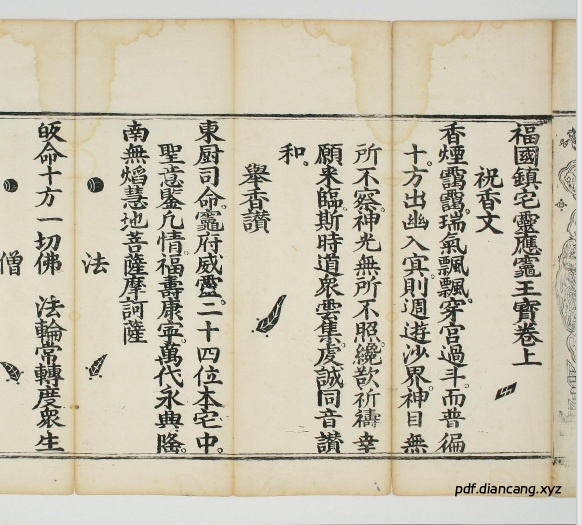 福國鎮宅靈應竈王寶卷上
祝香文
香煙靄靄。瑞氣飄飄。穿宮過斗。而普徧
十方出幽入冥。則週遊沙界。神目無
所不察。神光無所不照。纔歆祈禱幸
願來臨。斯時道衆雲集。虔誠同音讚
和。
舉香讚
東厨司命竈府威靈。二十四位本宅中。
聖意鑒凡情。福壽康寧。萬代永興隆。
南無熖慧地菩薩摩訶薩
法
皈命十方一切佛 法輪常轉度衆生
僧
pdf.diancang.xyz